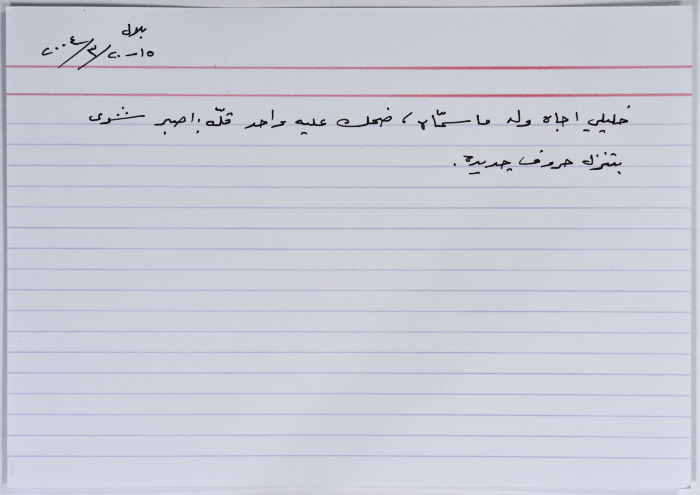 بلال
١٥-٢٠/٣/٢٠٠٤
خليلي اجاه ولد ما سمّاه، ضحك عليه واحد قلّه: اصبر شوى
بتنزل حروف جديدة.